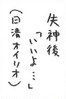 失神後
「いいよ…」
(日清オイリオ)